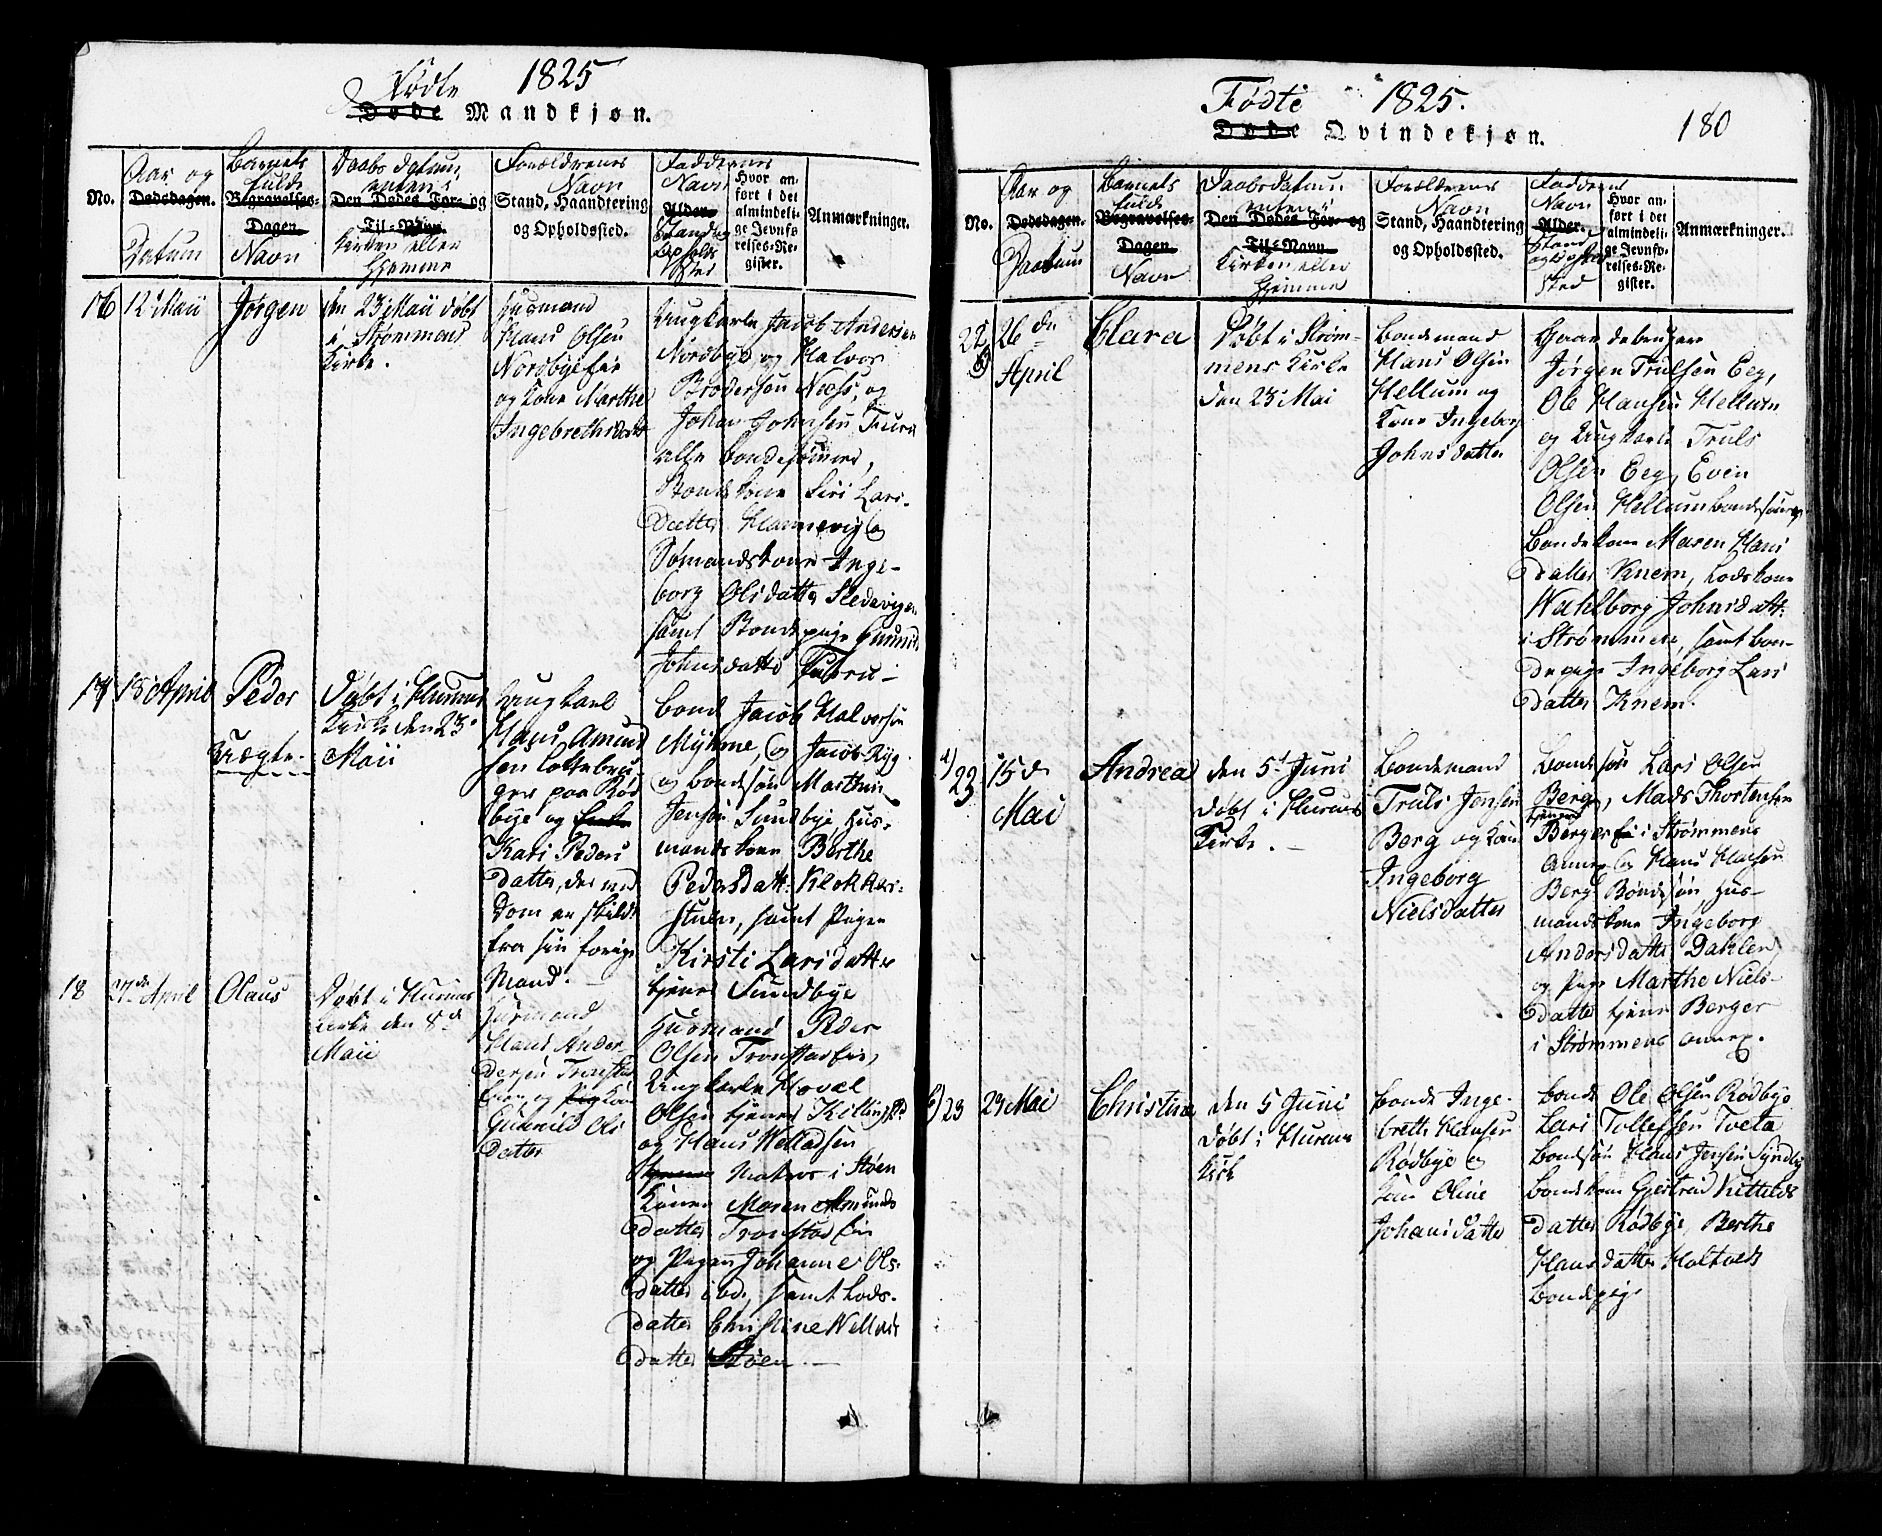 Fødte 1825
Døde Mandkjøn.
No.
Aar og
Dødsdagen.
Datum
Barnets
fulde
Begravelses-
Dagen
Navn
Daabs Datum
enten i
Den Dødes For- og
Til-Navn
Kirken eller
Hjemme
Forældrenes
Navn
Stand, Haandtering
og Opholdssted.
Faddernes
Navn
Alder
Hvor an-
ført i det
almindeli-
ge Jevnfø-
relses-Re-
gister.
Anmærkninger.
16
12 Maii
Jørgen
den 23 Maii døbt
i Strømmens
Kirke.
Huusmand
Hans Olsen
Nordbye
og Kone Marthe
Ingebrethsdatter
Ungkarle Jacob Andersen
Nordbye og Halvor
Brodersen Næss, og
Johan Johnsen
alle bondesønner,
Bondekone Siri Lars-
Datter Hannevig og
Sømandskone Inge-
borg Olsdatter Sledevigen
samt Bondepige
Johnsdatter
17
15 April
Peder
Uægte.
Døbt i Hurums
Kirke den 23
Maii
Ungkarl
Hans Amund
sen
ger paa Rød
bye og
Kari Peders
datter, der
dom er skildt
fra sin forige
Mand.
bonde Jacob Halvorsen
Myhrene, og Jacob Ryg
og bondesøn Marthin
Jensen Sundbye Hus-
mandskone Berthe
Pedersdatt: Klokker-
stuen, samt Pigen
Kirsti Larsdatter
tjener Sundbye
18
27de April
Olaus
Døbt i Hurums
Kirke den 8de
Maii
Husmand
Hans Ander
dersen Tronstad
Eier og
Gunnild Ols
datter
Husmand Peder
Olsen Tronstadeie,
Ungkarle
Olsen tjener
og Hans Welladsen
i Støen
Konen Maren Amunds
datter Tronstadeie
og Pigen Johanne Ols-
datter ibd, samt Lods-
datter Christine Wellads
datter Støen.
Fødte 1825.
180
Døde Qvindekjøn.
No.
Aar og
Dødsdagen.
Datum
Barnets
fulde
Begravelses-
Dagen
Navn
Daabs Datum
enten i
Den Dødes For- og
Til-Navn
Kirken eller
Hjemme
Forældrenes
Navn
Stand, Haandtering
og Opholdssted.
Faddernes
Navn
Alder
Stand
sted
Hvor an-
ført i det
almindeli-
ge Jevnfø-
relses-Re-
gister.
Anmærkninger.
22
26de
April
Clara
Døbt i Strøm-
mens Kirke
den 23 Mai
Bondemand
Hans Olsen
Hellum og
Kone Ingeborg
Johnsdatter
Gaardebruger
Jørgen Trulsen Eeg,
Ole Hansen Hellum
og Ungkarle Truls
Olsen Eeg, Even
Olsen Hellum bondesønner
Bondekone Maren Hans
datter Knem, Lodskone
Wahlborg Johnsdatt:
i Strømmen, samt bon-
depige Ingeborg Lars
datter Knem.
23
15de
Mai
Andrea
den 5te Juni
døbt i Hurums
Kirke.
Bondemand
Truls Jensen
Berg og Kone
Ingeborg
Nielsdatter
Bondesøn Lars Olsen
Berg, Mads Thortensen
tjenende
Berger i Strømmens
Annex og Hans Hansen
Berg Bondesøn, Hus-
mandskone Ingeborg
Andersdatter Dahlen
og Pige Marthe Niels-
datter tjener Berger
i Strømmens annex.
23
29 Mai
Christine
den 5 Juni
døbt i Hurums
Kirk
Bonde Inge-
breth Hansen
Rødbye og
Oline
Johansdatter
bonde Ole Olsen Rødbye
Lars Tollefsen Tveta
Bondsøn Hans Jensen Syndby
bondekone Gjertrud Kittelds
datter Rødbye, Berthe
Hansdatter Holtvedt
Bondepige